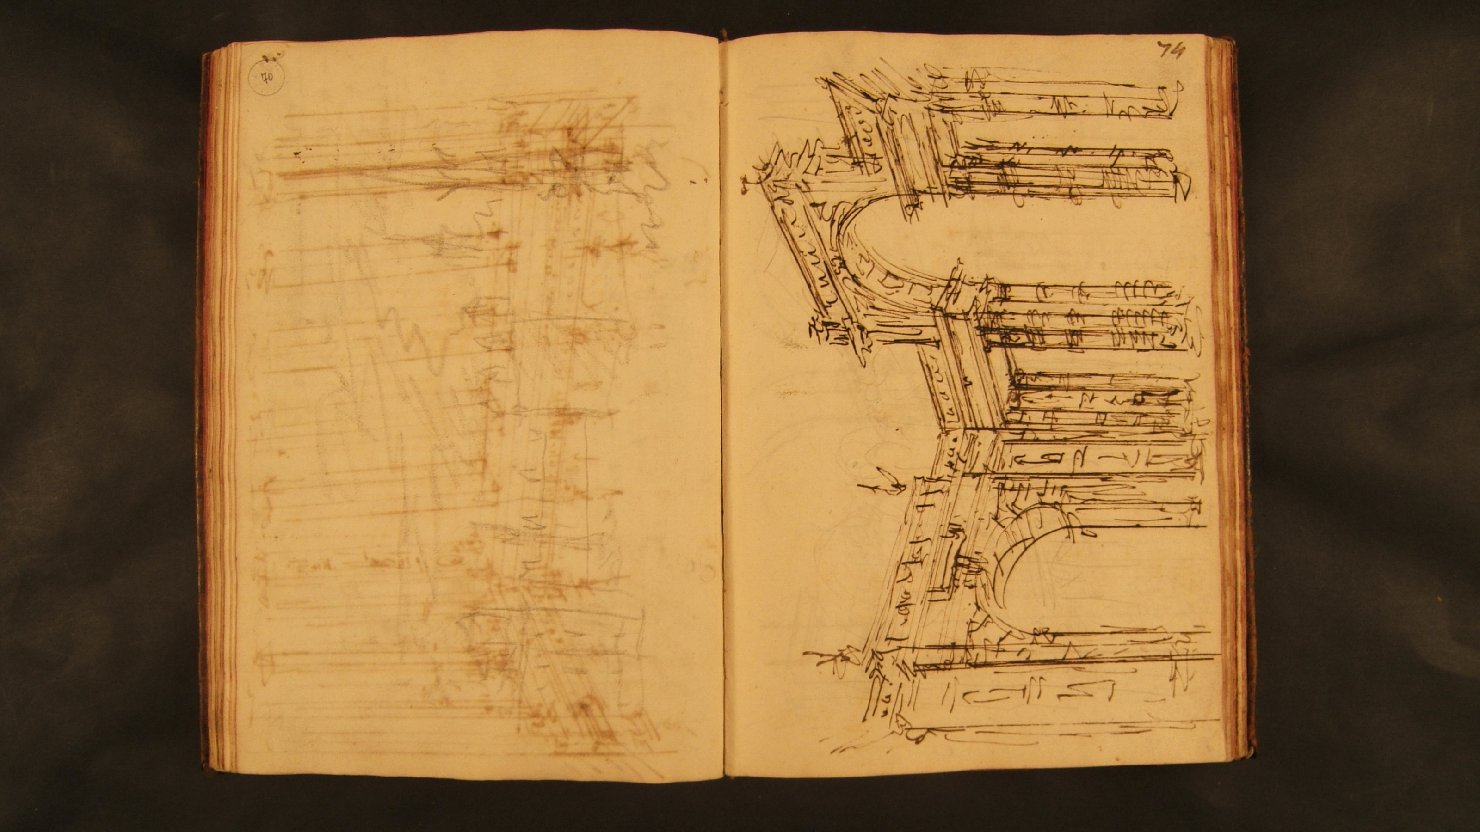 70
74